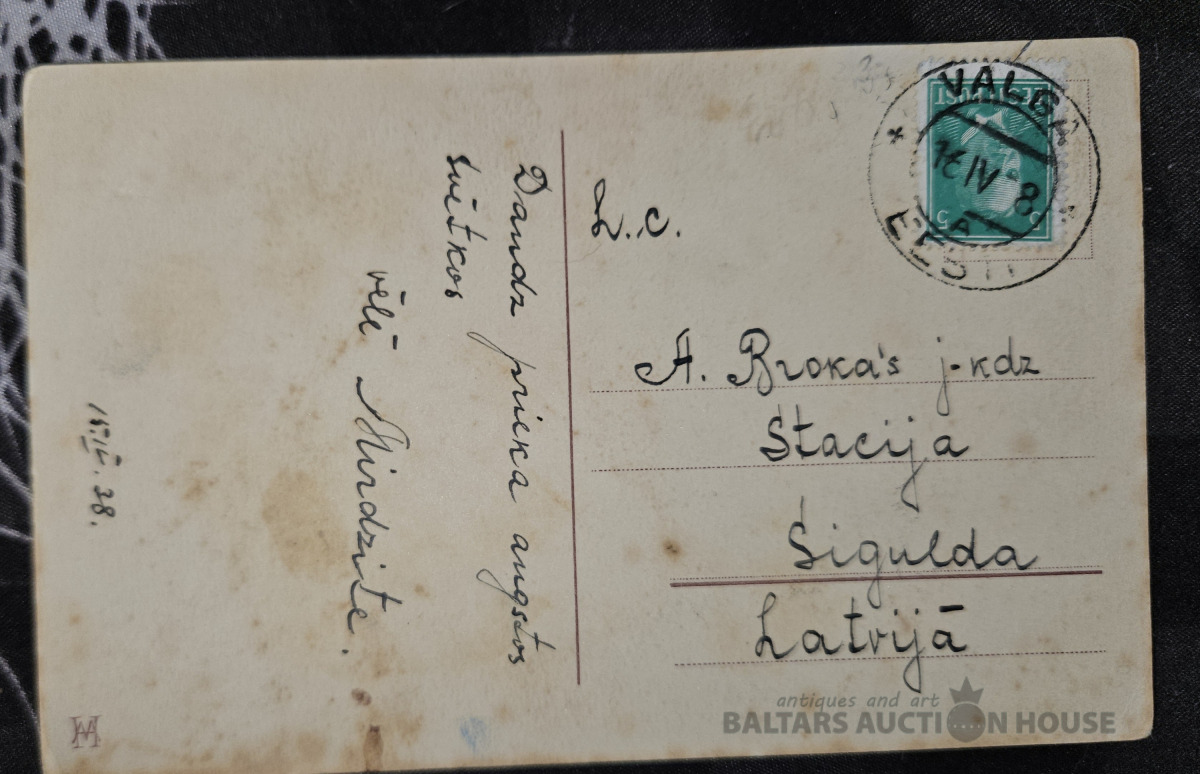 Daudz prieka augstos
svētkos
vēlē Mirdzīte.
15.IV.38.
L.c.
A. Broka's j-kdz
Stacija
Sigulda
Latvijā
VALGA
16 IV 8
A
EESTI
EESTI
5 5
antiques and art
BALTARS AUCTION HOUSE